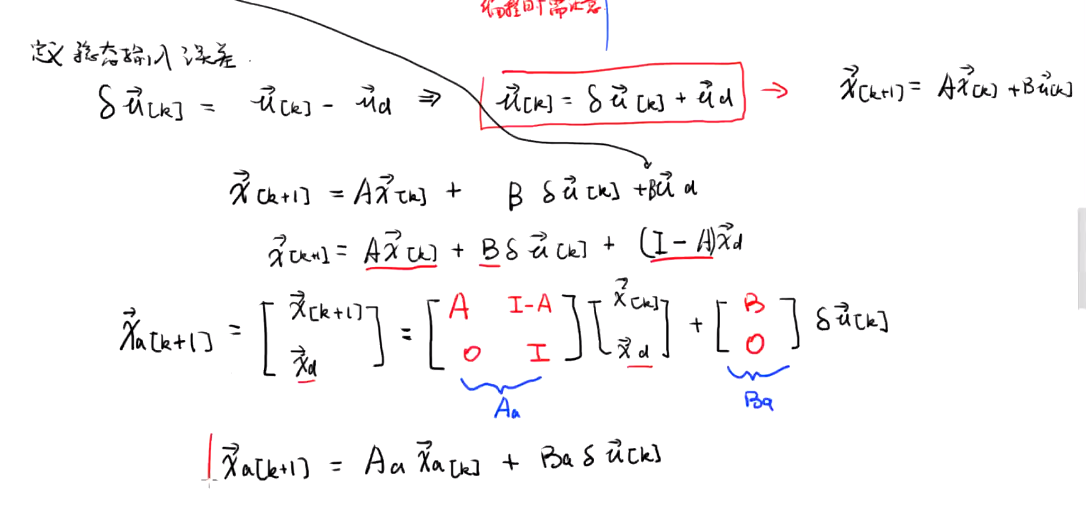 编程时需注意
定义稳态输入误差
δu⃗[k] = u⃗[k] - u⃗d ⇒ u⃗[k] = δu⃗[k] + u⃗d → x⃗[k+1] = Ax⃗[k] + Bu⃗[k]
x⃗[k+1] = Ax⃗[k] + B δu⃗[k] + Bu⃗d
x⃗[k+1] = Ax⃗[k] + Bδu⃗[k] + (I-A)x⃗d
x⃗a[k+1] = [x⃗[k+1] x⃗d] = [A I-A 0 I][x⃗[k] x⃗d] + [B 0] δu⃗[k]
Aa Ba
x⃗a[k+1] = Aa x⃗a[k] + Ba δu⃗[k]